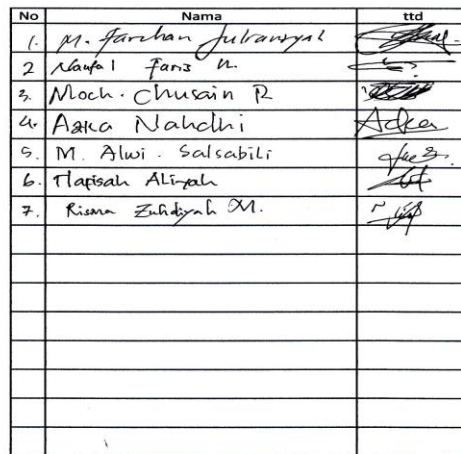 No Nama ttd
1. M. Farchan Julbransyah
2 Naufal Faris N.
3. Moch. Chusain R
4. Azka Nahdhi
5. M. Alwi. Salsabili
6. Hafisah Aliyah
7. Risma Zuhdiyah M.